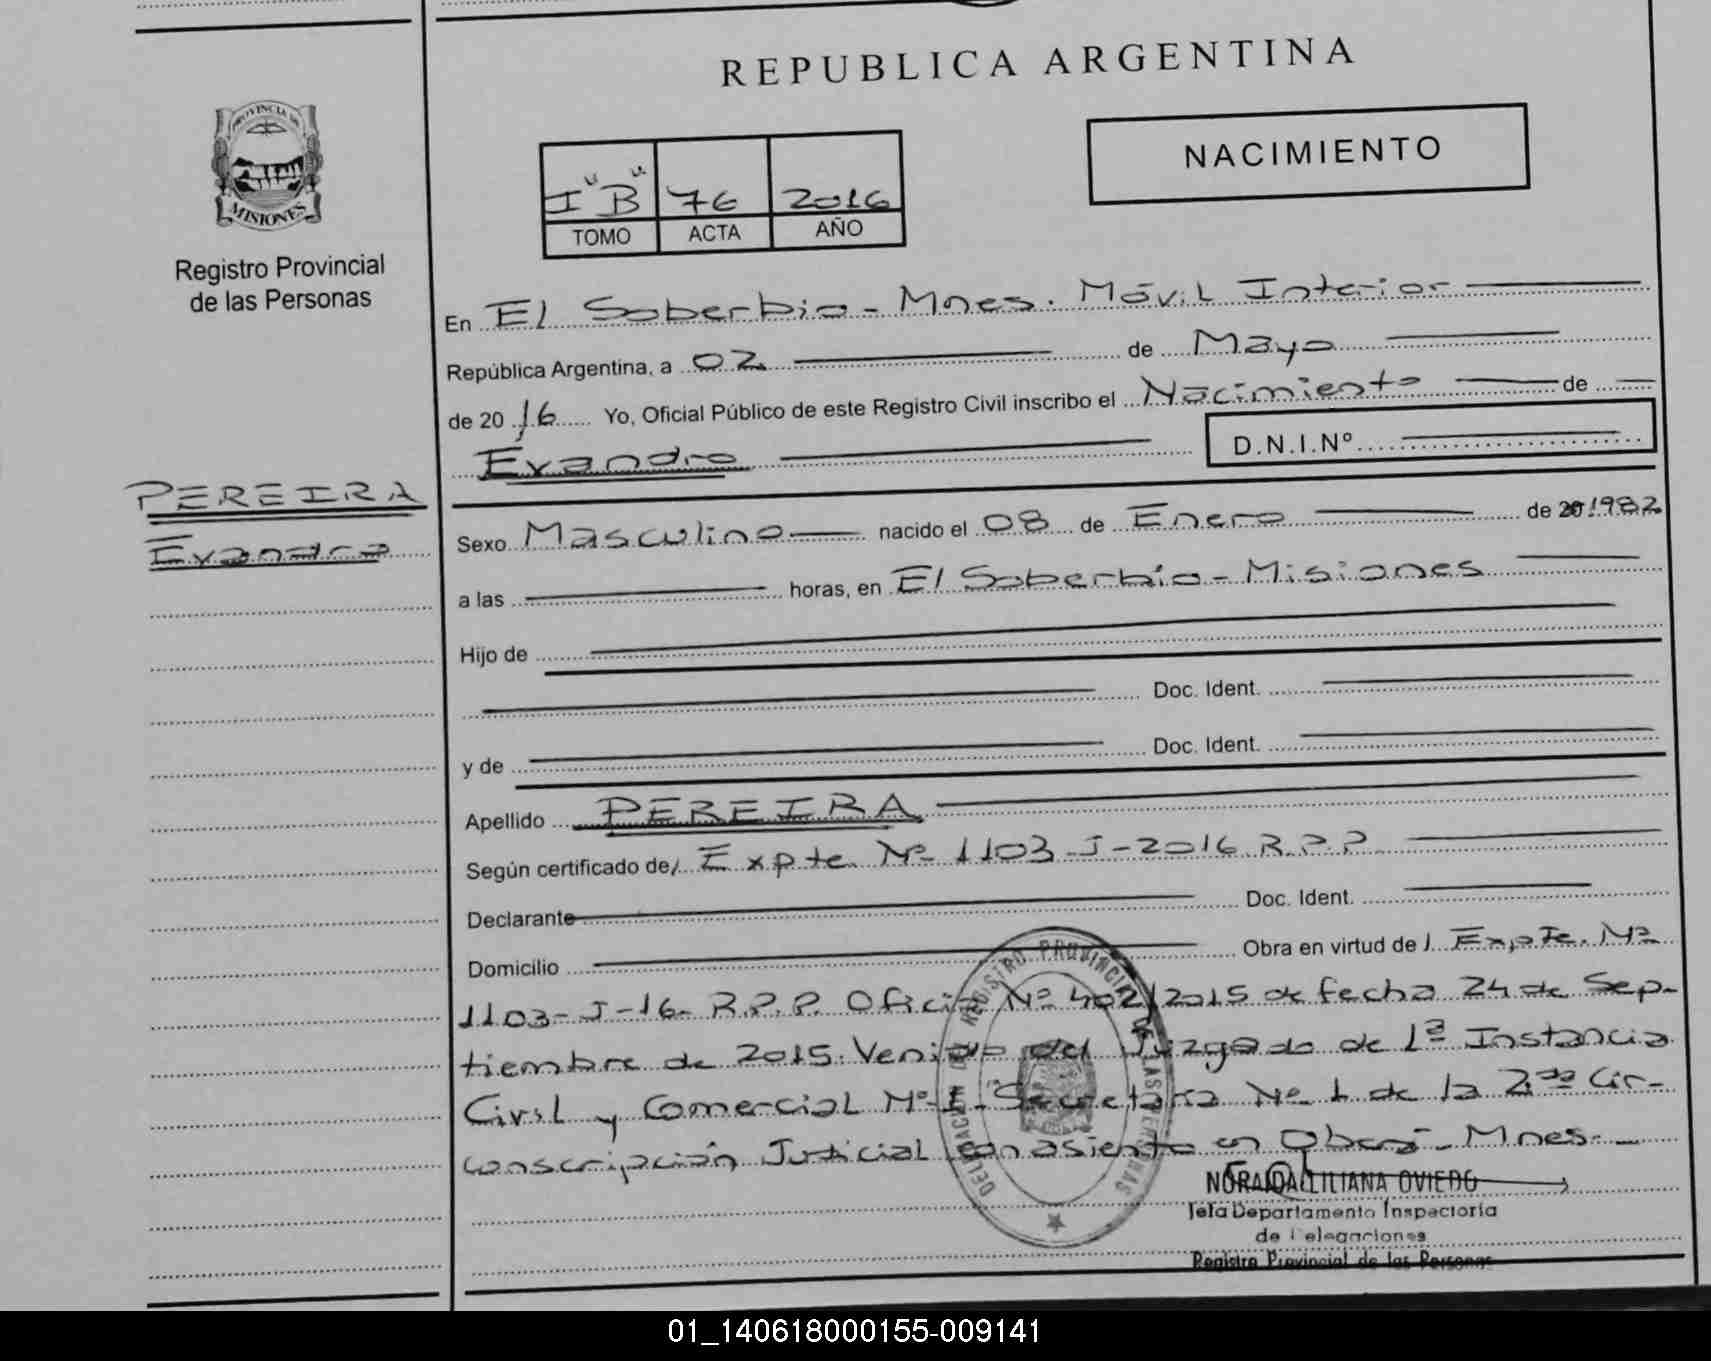 REPUBLICA ARGENTINA
PROVINCIA DE
MISIONES
Registro Provincial
de las Personas
NACIMIENTO
I "B" 76 2016
TOMO ACTA AÑO
En El Soberbio - Mnes. Móvil Interior
República Argentina, a 02 de Mayo
de 2016 Yo, Oficial Público de este Registro Civil inscribo el Nacimiento de
Evandro D.N.I.Nº
PEREIRA
Evandro
Sexo Masculino nacido el 08 de Enero de 20 1982
a las horas, en El Soberbio - Misiones
Hijo de
Doc. Ident.
y de Doc. Ident.
Apellido PEREIRA
Según certificado de/ Expte. Nº 1103-J-2016 R.P.P.
Declarante Doc. Ident.
Domicilio Obra en virtud de/ Expte. Nº
1103-J-16- R.P.P. Oficio Nº 402/2015 de fecha 24 de Sep-
tiembre de 2015. Venido del Juzgado de 1ª Instancia
Civil y Comercial Nº 1- Secretaria Nº 1 de la 2da Cir-
conscripción Judicial con asiento en Oberá - Mnes.-
DELEGACION DEL REGISTRO PROVINCIAL DE LAS PERSONAS
NORA IDA LILIANA OVIEDO
Jefa Departamento Inspectoría
de Delegaciones
Registro Provincial de las Personas
01_140618000155-009141